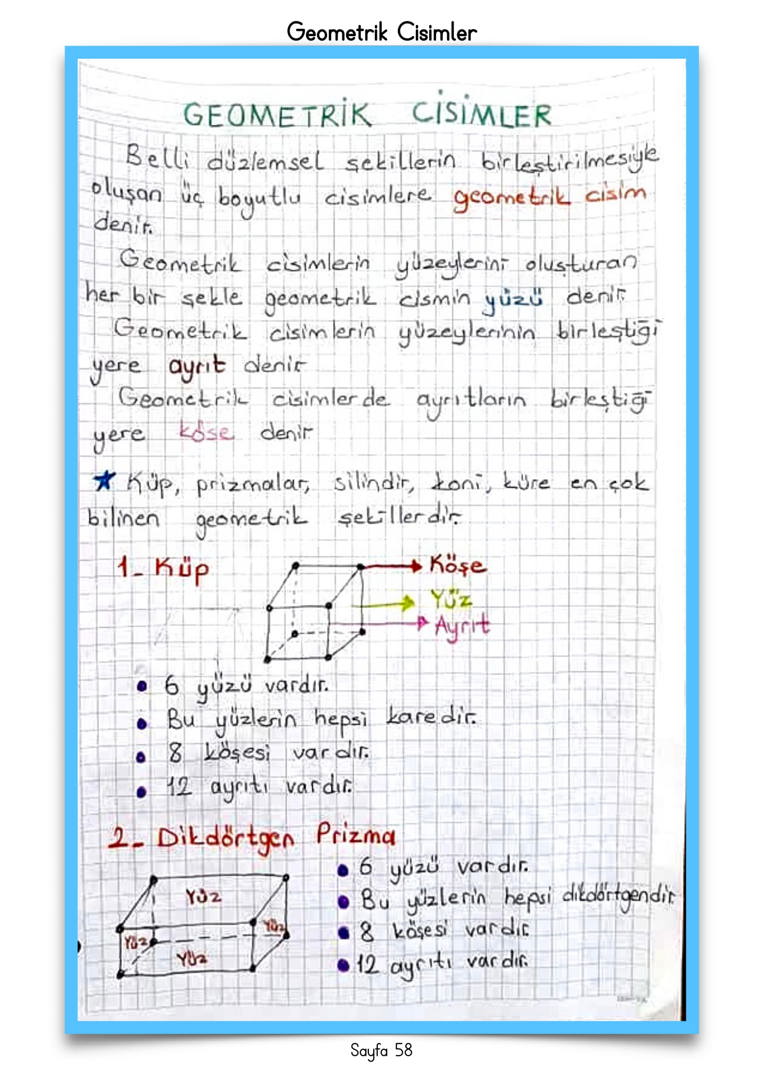 Geometrik Cisimler
GEOMETRİK CİSİMLER
Belli düzlemsel şekillerin birleştirilmesiyle
oluşan üç boyutlu cisimlere geometrik cisim
denir.
Geometrik cisimlerin yüzeylerini oluşturan
her bir şekle geometrik cismin yüzü denir.
Geometrik cisimlerin yüzeylerinin birleştiği
yere ayrıt denir
Geometrik cisimlerde ayrıtların birleştiği
yere köşe denir
★ Küp, prizmalar, silindir, koni, küre en çok
bilinen geometrik şekillerdir.
1- Küp
Köşe
Yüz
Ayrıt
• 6 yüzü vardır.
• Bu yüzlerin hepsi karedir.
• 8 köşesi vardır.
• 12 ayrıtı vardır.
2- Dikdörtgen Prizma
Yüz
Yüz
Yüz
Yüz
• 6 yüzü vardır.
• Bu yüzlerin hepsi dikdörtgendir
• 8 köşesi vardır
• 12 ayrıtı vardır.
Sayfa 58